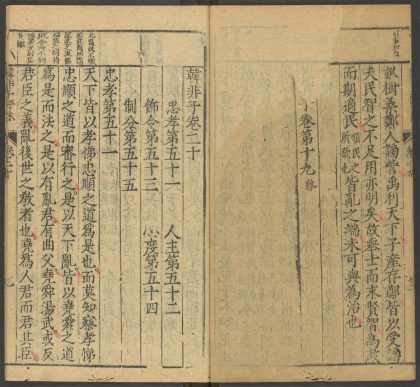 畝樹桑鄭人謗訾禹利天下子產存鄭皆以受謗
夫民智之不足用亦明矣故舉士而求賢智為政
而期適民順民之所欲也皆亂之端未可與為治也
子卷第十九終
韓非子卷二十
忠孝第五十一　人主第五十二
飾令第五十三　心度第五十四
制分第五十五
忠孝第五十一
天下皆以孝悌忠順之道爲是也而莫知察孝悌
忠順之道而審行之是以天下亂皆以堯舜之道
爲是而法之是以有亂君有曲父堯舜湯武或反
君臣之義亂後世之教者也堯爲人君而君其臣